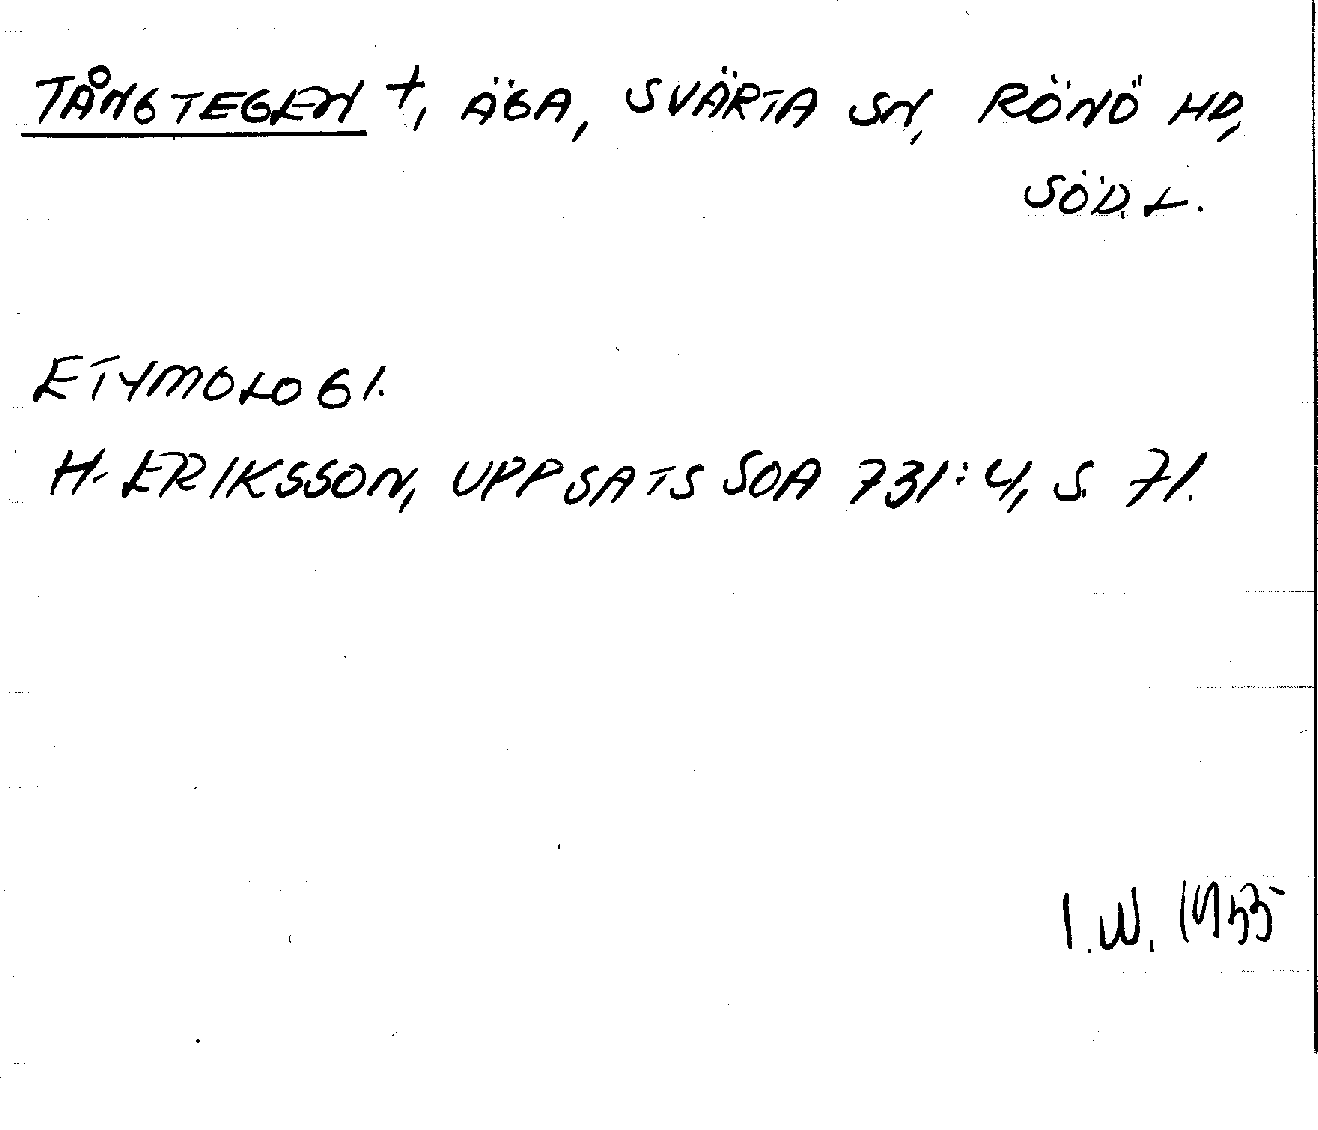 TÅNGTEGEN +, ÄGA, SVÄRTA SN, RÖNÖ HD,
SÖD.L.
ETYMOLOGI.
H. ERIKSSON, UPPSATS SOA 731:4, S. 71.
I.W. 1955